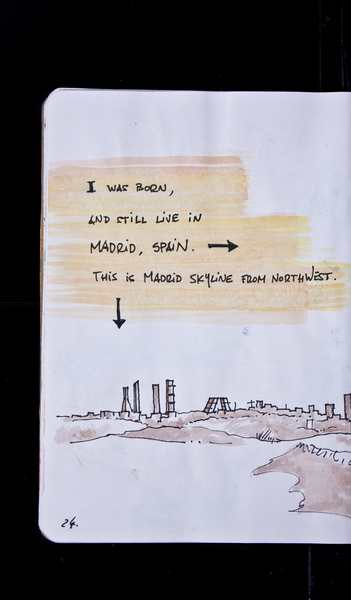 I WAS BORN,
AND STILL LIVE IN
MADRID, SPAIN. →
THIS IS MADRID SKYLINE FROM NORTHWEST.
24.